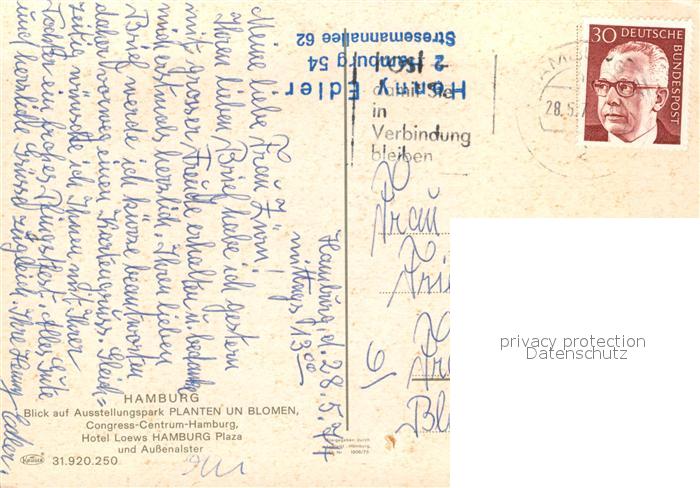 Hamburg, d. 28.5.74
mittags 13.00
Meine liebe Frau
Ihren lieben Brief habe ich gestern
mit grosser Freude erhalten u. bedanke
mich erstmals herzlich. Ihren lieben
Brief werde ich beantworten
daher vorweg einen Kartengruss. Gleich=
zeitig wünsche ich Ihnen mit Ihrer
Tochter ein frohes Pfingstfest. Alles Gute
und herzliche Grüsse zugleich. Ihre Henny Edler.
Henny Edler
2 Hamburg 54
Stresemannallee 62
damit Sie
in
Verbindung
bleiben
28.5.7
30 DEUTSCHE
BUNDESPOST
Frau
6
HAMBURG
Blick auf Ausstellungspark PLANTEN UN BLOMEN,
Congress-Centrum-Hamburg,
Hotel Loews HAMBURG Plaza
und Außenalster
Krüger 31.920.250
privacy protection
Datenschutz